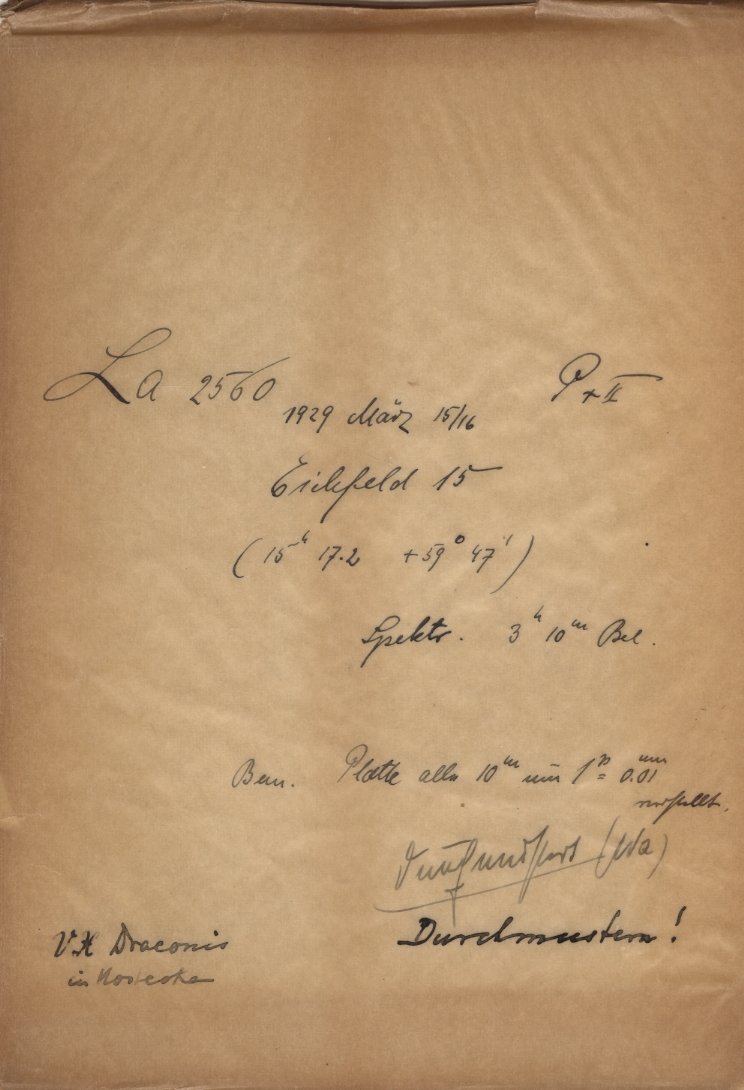 La 2560 P + II
1929 März 15/16
Eichfeld 15
(15ʰ 17.2 +59° 47')
Spektr. 3ʰ 10ᵐ Bel.
Bem. Platte alle 10ᵐ um 1ᵖ = 0.01ᵐᵐ
verstellt.
durchmustert (Wa)
Durchmustern!
Draconis
in Nordecke